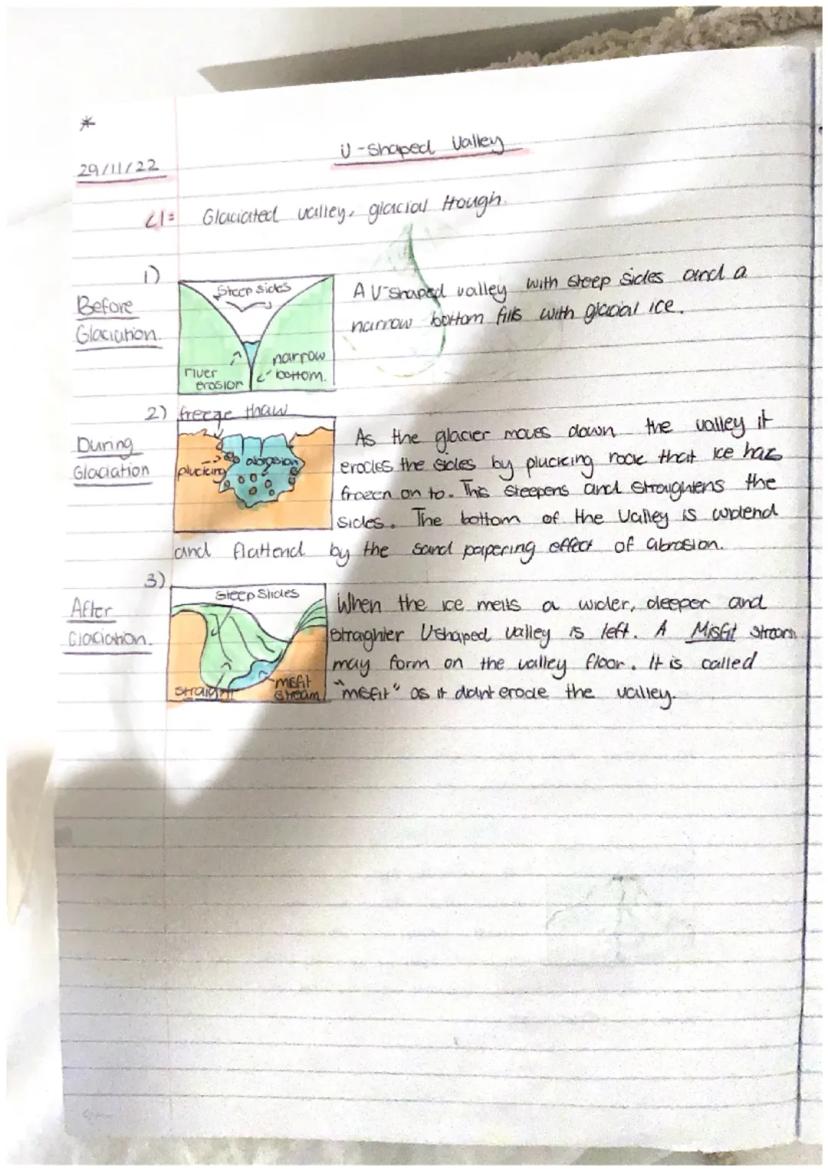 *
29/11/22
U-shaped Valley
LI= Glaciated valley, glacial trough.
1)
Before
Glaciation.
Steep sides
river
erosion
narrow
bottom.
A V-shaped valley with steep sides and a
narrow bottom fills with glacial ice.
2) freeze thaw
During
Glaciation
plucking
abrasion
As the glacier moves down the valley it
erodes the sides by plucking rock that ice has
frozen on to. This steepens and straightens the
sides. The bottom of the valley is widend
and flattend by the sand papering effect of abrasion.
3)
After
Glaciation.
Steep Slides
straight
misfit
stream
When the ice melts a wider, deeper and
straighter U shaped valley is left. A Misfit stream
may form on the valley floor. It is called
"misfit" as it didnt erode the valley.